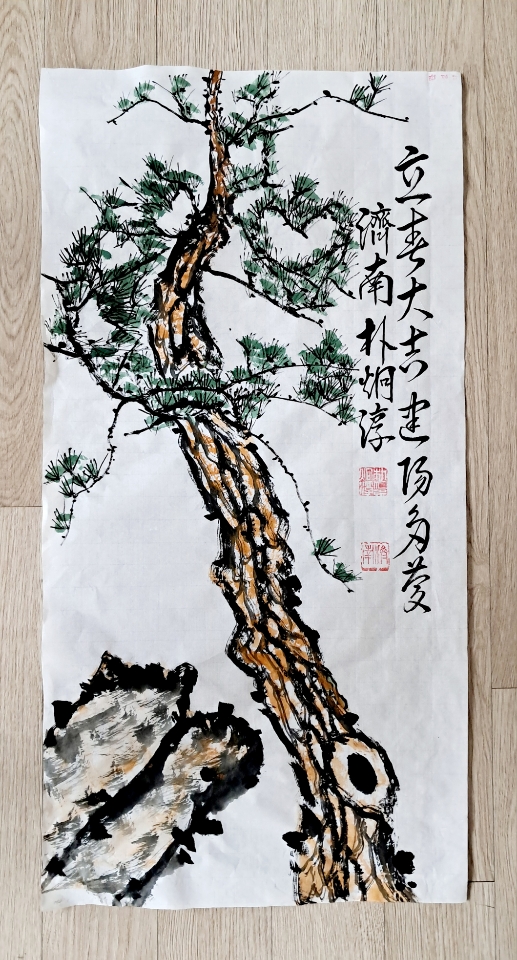 立春大吉建陽多慶
濟南朴炯淳